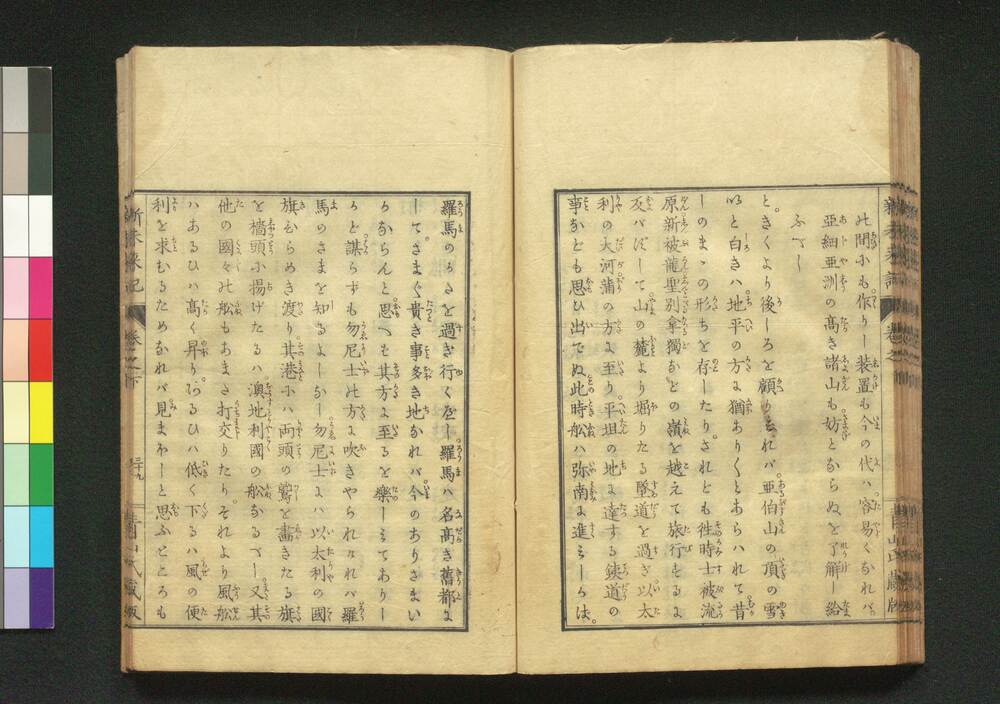 此間にも作りし装置も今の代ハ容易くなれバ
亜細亜洲の高き諸山も妨とならぬを了解し給
ふべし
ときくより後しろを顧りミれバ。亜伯山の頂の雪
いと白きハ。地平の方に猶ありくとあらハれて昔
しのまゝの形ちを存したり。されども徃時士被流
原新被龍聖別拿獨などの嶺を越えて旅行せるに
反バずして山の麓より堀りたる墜道を過ぎ以太
利の大河蒲の方に至り。平坦の地に達する鉄道の
事なども思ひ出でぬ此時舩ハ弥南に進ミしらは。
羅馬のうさを過ぎ行く应し羅馬ハ名高き舊都に
してさまざま貴き事多き地なれバ。今のありさまい
かならんと思へで其方に至るを樂しミてありし
かど謀らずも勿尼士此方に吹きやられたれバ羅
馬のさまを知るよしなし勿尼士にハ以太利の國
旗むらめき渡り。其港にハ両頭の鷲を畫きたる旗
を檣頭に揚げたるハ。澳地利國の舩なるべし又其
他の國々の舩もあまさ打交りたり。それより風舩
ハあるひハ高く昇り。あるひハ低く下るハ風の便
利を求むるためなれバ見まわしと思ふところも
新未来記 巻之下 三十九 青山氏蔵版